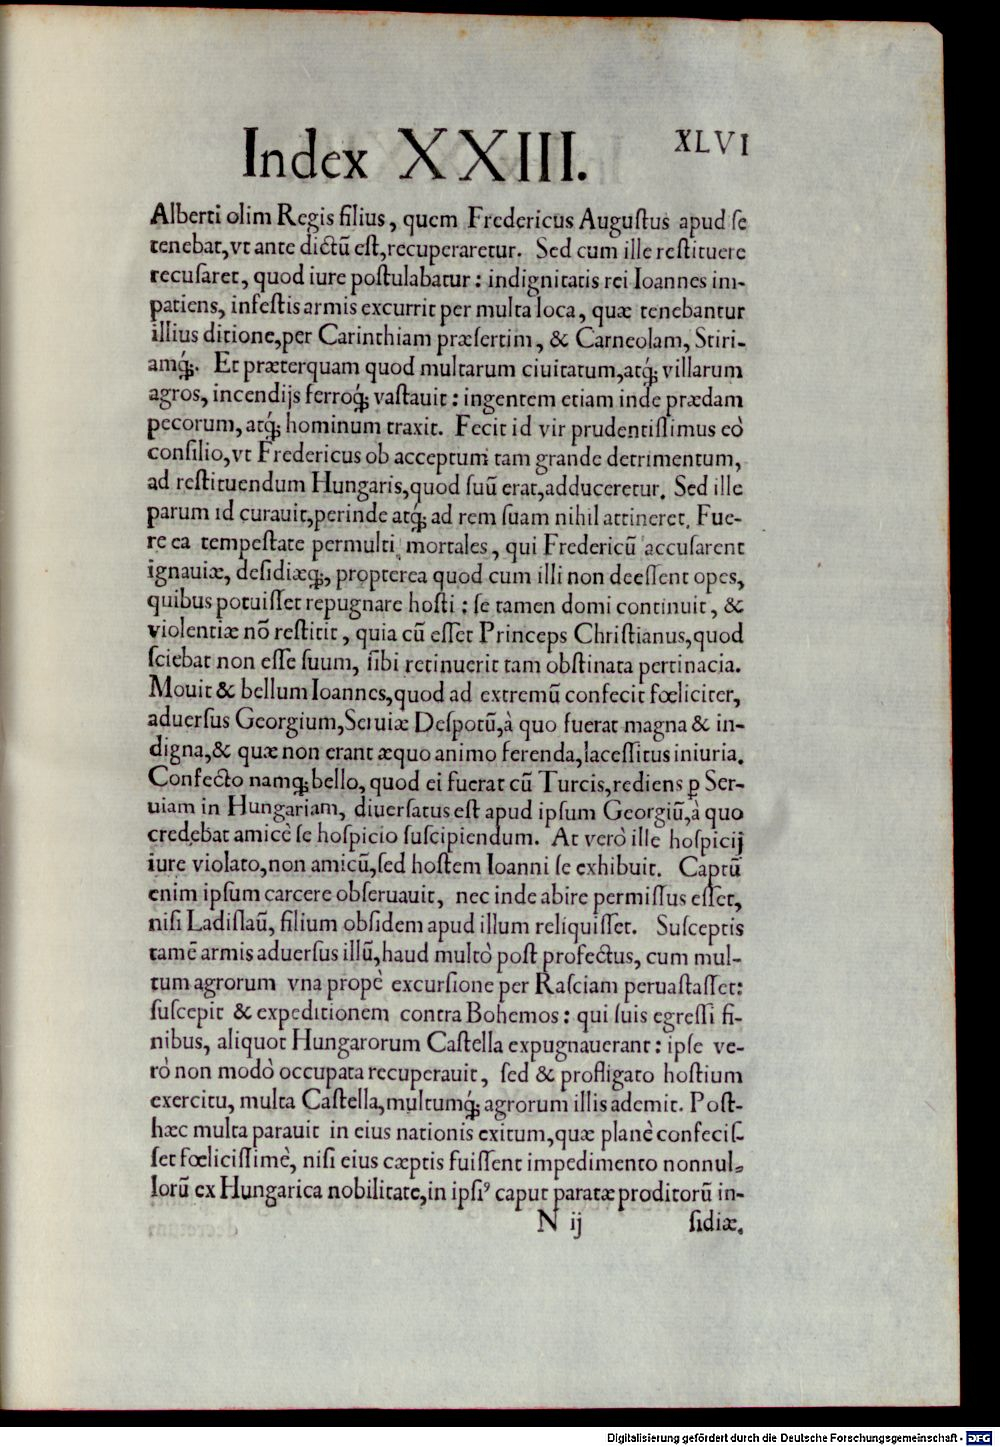 Index XXIII. XLVI
Alberti olim Regis filius, quem Fredericus Auguſtus apud ſe
tenebat, vt ante dictũ eſt, recuperaretur. Sed cum ille reſtituere
recuſaret, quod iure poſtulabatur: indignitatis rei Ioannes im-
patiens, infeſtis armis excurrit per multa loca, quæ tenebantur
illius ditione, per Carinthiam præſertim, & Carneolam, Stiri-
amq́ꝫ. Et præterquam quod multarum ciuitatum, atq́ꝫ villarum
agros, incendijs ferroq́ꝫ vaſtauit: ingentem etiam inde prædam
pecorum, atq́ꝫ hominum traxit. Fecit id vir prudentiſſimus eò
conſilio, vt Fredericus ob acceptum tam grande detrimentum,
ad reſtituendum Hungaris, quod ſuũ erat, adduceretur. Sed ille
parum id curauit, perinde atq́ꝫ ad rem ſuam nihil attineret. Fue-
re ea tempeſtate permulti mortales, qui Fredericũ accuſarent
ignauiæ, deſidiæqꝫ, propterea quod cum illi non deeſſent opes,
quibus potuiſſet repugnare hoſti: ſe tamen domi continuit, &
violentiæ nõ reſtitit, quia cũ eſſet Princeps Chriſtianus, quod
ſciebat non eſſe ſuum, ſibi retinuerit tam obſtinata pertinacia.
Mouit & bellum Ioannes, quod ad extremũ confecit fœliciter,
aduerſus Georgium, Seruiæ Deſpotũ, à quo fuerat magna & in-
digna, & quæ non erant æquo animo ferenda, laceſſitus iniuria.
Confecto namqꝫ bello, quod ei fuerat cũ Turcis, rediens ꝑ Ser-
uiam in Hungariam, diuerſatus eſt apud ipſum Georgiũ, à quo
credebat amicè ſe hoſpicio ſuſcipiendum. At verò ille hoſpicij
iure violato, non amicũ, ſed hoſtem Ioanni ſe exhibuit. Captũ
enim ipſum carcere obſeruauit, nec inde abire permiſſus eſſet,
niſi Ladiſlaũ, filium obſidem apud illum reliquiſſet. Suſceptis
tamẽ armis aduerſus illũ, haud multò poſt profectus, cum mul-
tum agrorum vna propè excurſione per Raſciam peruaſtaſſet:
ſuſcepit & expeditionem contra Bohemos: qui ſuis egreſſi fi-
nibus, aliquot Hungarorum Caſtella expugnauerant: ipſe ve-
rò non modò occupata recuperauit, ſed & profligato hoſtium
exercitu, multa Caſtella, multumq́ꝫ agrorum illis ademit. Poſt-
hæc multa parauit in eius nationis exitum, quæ planè confeciſ-
ſet fœliciſſimè, niſi eius cæptis fuiſſent impedimento nonnul-
lorũ ex Hungarica nobilitate, in ipſiꝰ caput paratæ proditorũ in-
N ij ſidiæ.
Digitalisierung gefördert durch die Deutsche Forschungsgemeinschaft - DFG